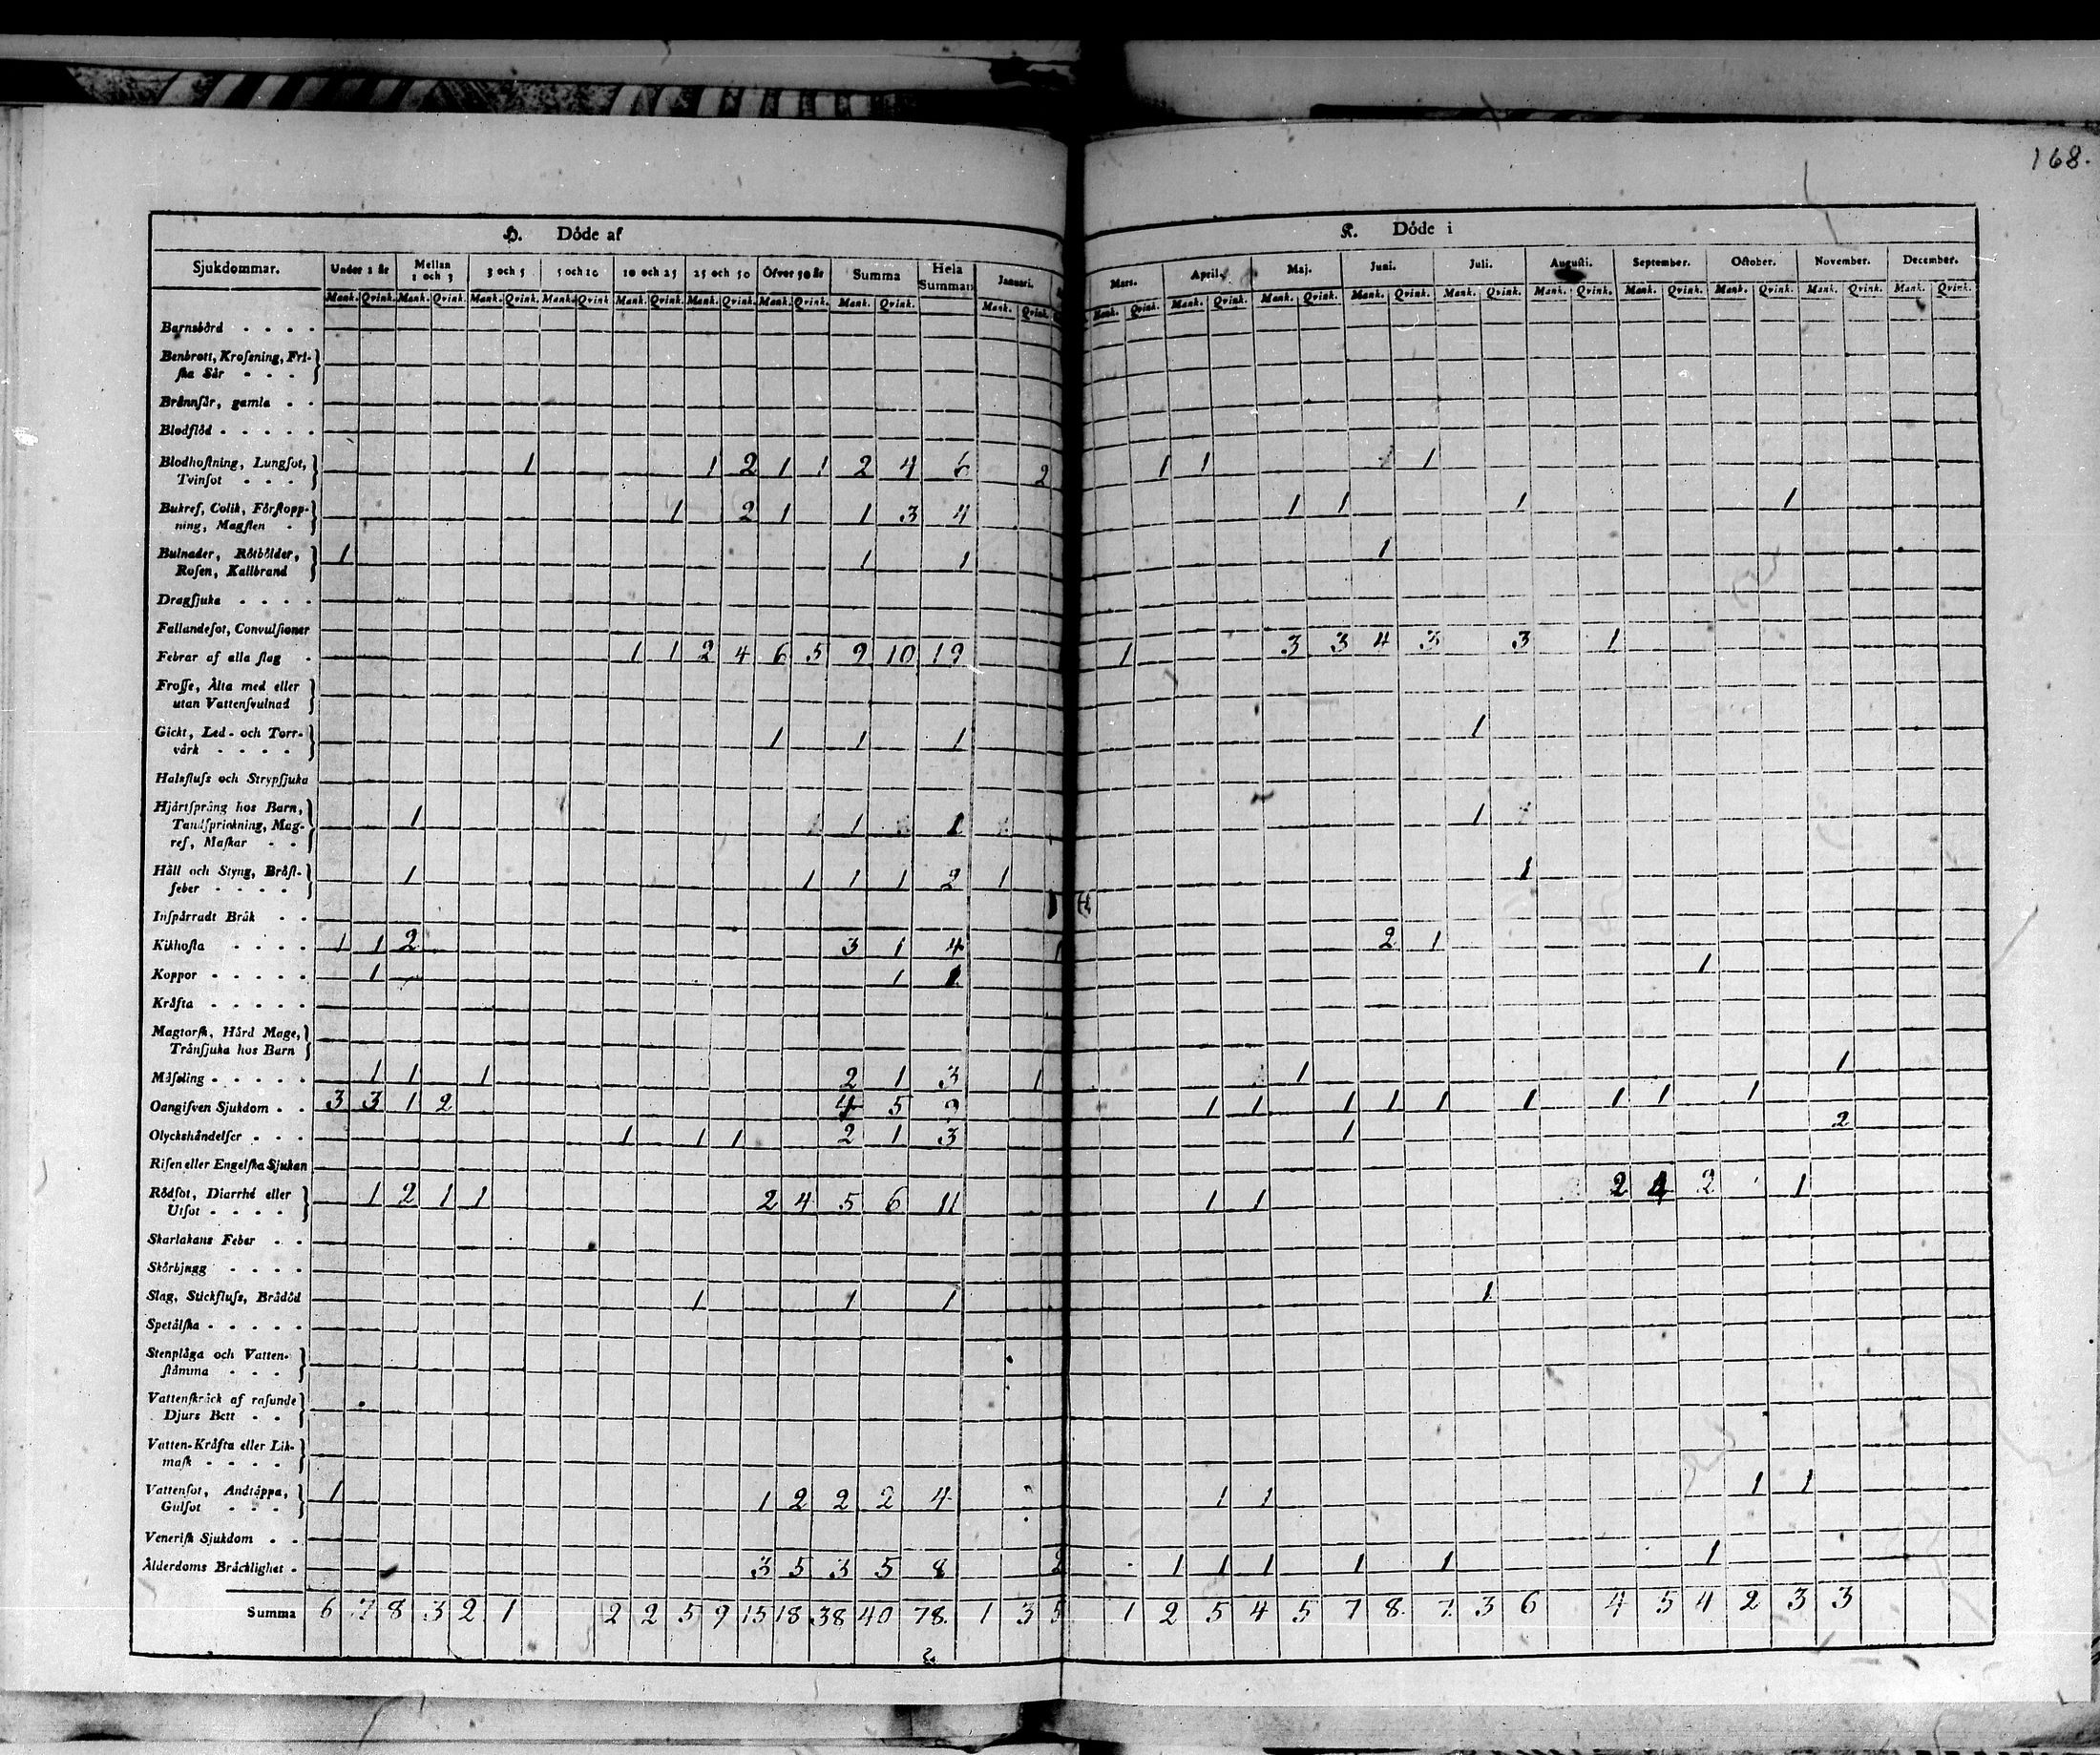 168.
H. Döde af
K. Döde i
Sjukdommar. Under 1 år Mellan 1 och 3 3 och 5 5 och 10 10 och 25 25 och 50 Öfver 50 år Summa Hela Summan Januari. Mars. April. Maj. Juni. Juli. Augusti. September. October. November. December.
Mank. Qvink. Mank. Qvink. Mank. Qvink. Mank. Qvink. Mank. Qvink. Mank. Qvink. Mank. Qvink. Mank. Qvink. Mank. Qvink. Mank. Qvink. Mank. Qvink. Mank. Qvink. Mank. Qvink. Mank. Qvink. Mank. Qvink. Mank. Qvink. Mank. Qvink. Mank. Qvink. Mank. Qvink.
Barnsbörd
Benbrott, Krosſning, Fri-
ſka Sår
Brännſår, gamla
Blodflöd
Blodhoſtning, Lungſot, 1 1 2 1 1 2 4 6 2 1 1 1
Tvinſot
Bukref, Colik, Förſtopp- 1 2 1 1 3 4 1 1 1 1
ning, Magſten
Bulnader, Rötbölder, 1 1 1 1
Roſen, Kallbrand
Dragſjuka
Fallandeſot, Convulſioner
Febrar af alla ſlag 1 1 2 4 6 5 9 10 19 1 3 3 4 3 3 1
Froſſe, Älta med eller
utan Vattenſvulnad
Gickt, Led- och Torr- 1 1 1 1
värk
Halsfluſs och Strypſjuka
Hjärtſprång hos Barn, 1 1 1 1
Tandſprickning, Mag-
ref, Maſkar
Håll och Styng, Bröſt- 1 1 1 1 2 1 1
feber
Inſpärradt Bråk
Kikhoſta 1 1 2 3 1 4 1 2 1
Koppor 1 1 1 1
Kräfta
Magtorſk, Hård Mage,
Tränſjuka hos Barn
Mäſsling 1 1 1 2 1 3 1 1 1
Oangifven Sjukdom 3 3 1 2 4 5 9 1 1 1 1 1 1 1 1 1
Olyckshändelſer 1 1 1 2 1 3 1 2
Riſen eller Engelſka Sjukan
Rödſot, Diarrhé eller 1 2 1 1 2 4 5 6 11 1 1 2 4 2 1
Utſot
Skarlakans Feber
Skörbjugg
Slag, Stickfluſs, Brådöd 1 1 1 1
Spetälſka
Stenplåga och Vatten-
ſtämma
Vattenſkräck af raſande
Djurs Bett
Vatten-Kräfta eller Lik-
maſk
Vattenſot, Andtäppa, 1 1 2 2 2 4 1 1 1 1
Gulſot
Veneriſk Sjukdom
Ålderdoms Bräcklighet 3 5 3 5 8 2 1 1 1 1 1 1
Summa 6 7 8 3 2 1 2 2 5 9 15 18 38 40 78. 1 3 5 1 2 5 4 5 7 8. 7. 3 6 4 5 4 2 3 3